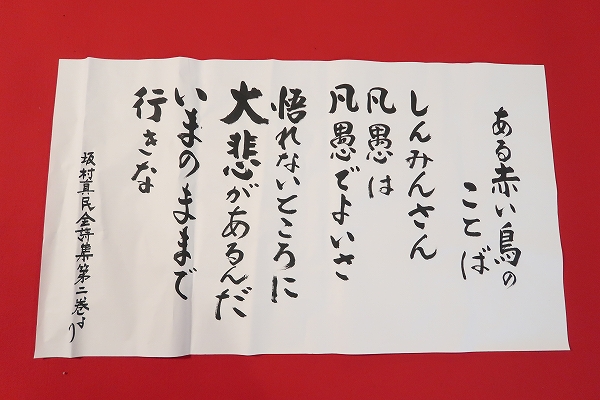 ある赤い鳥の
ことば
しんみんさん
凡愚は
凡愚でよいさ
悟れないところに
大悲があるんだ
いまのままで
行きな
坂村真民全詩集第二巻より